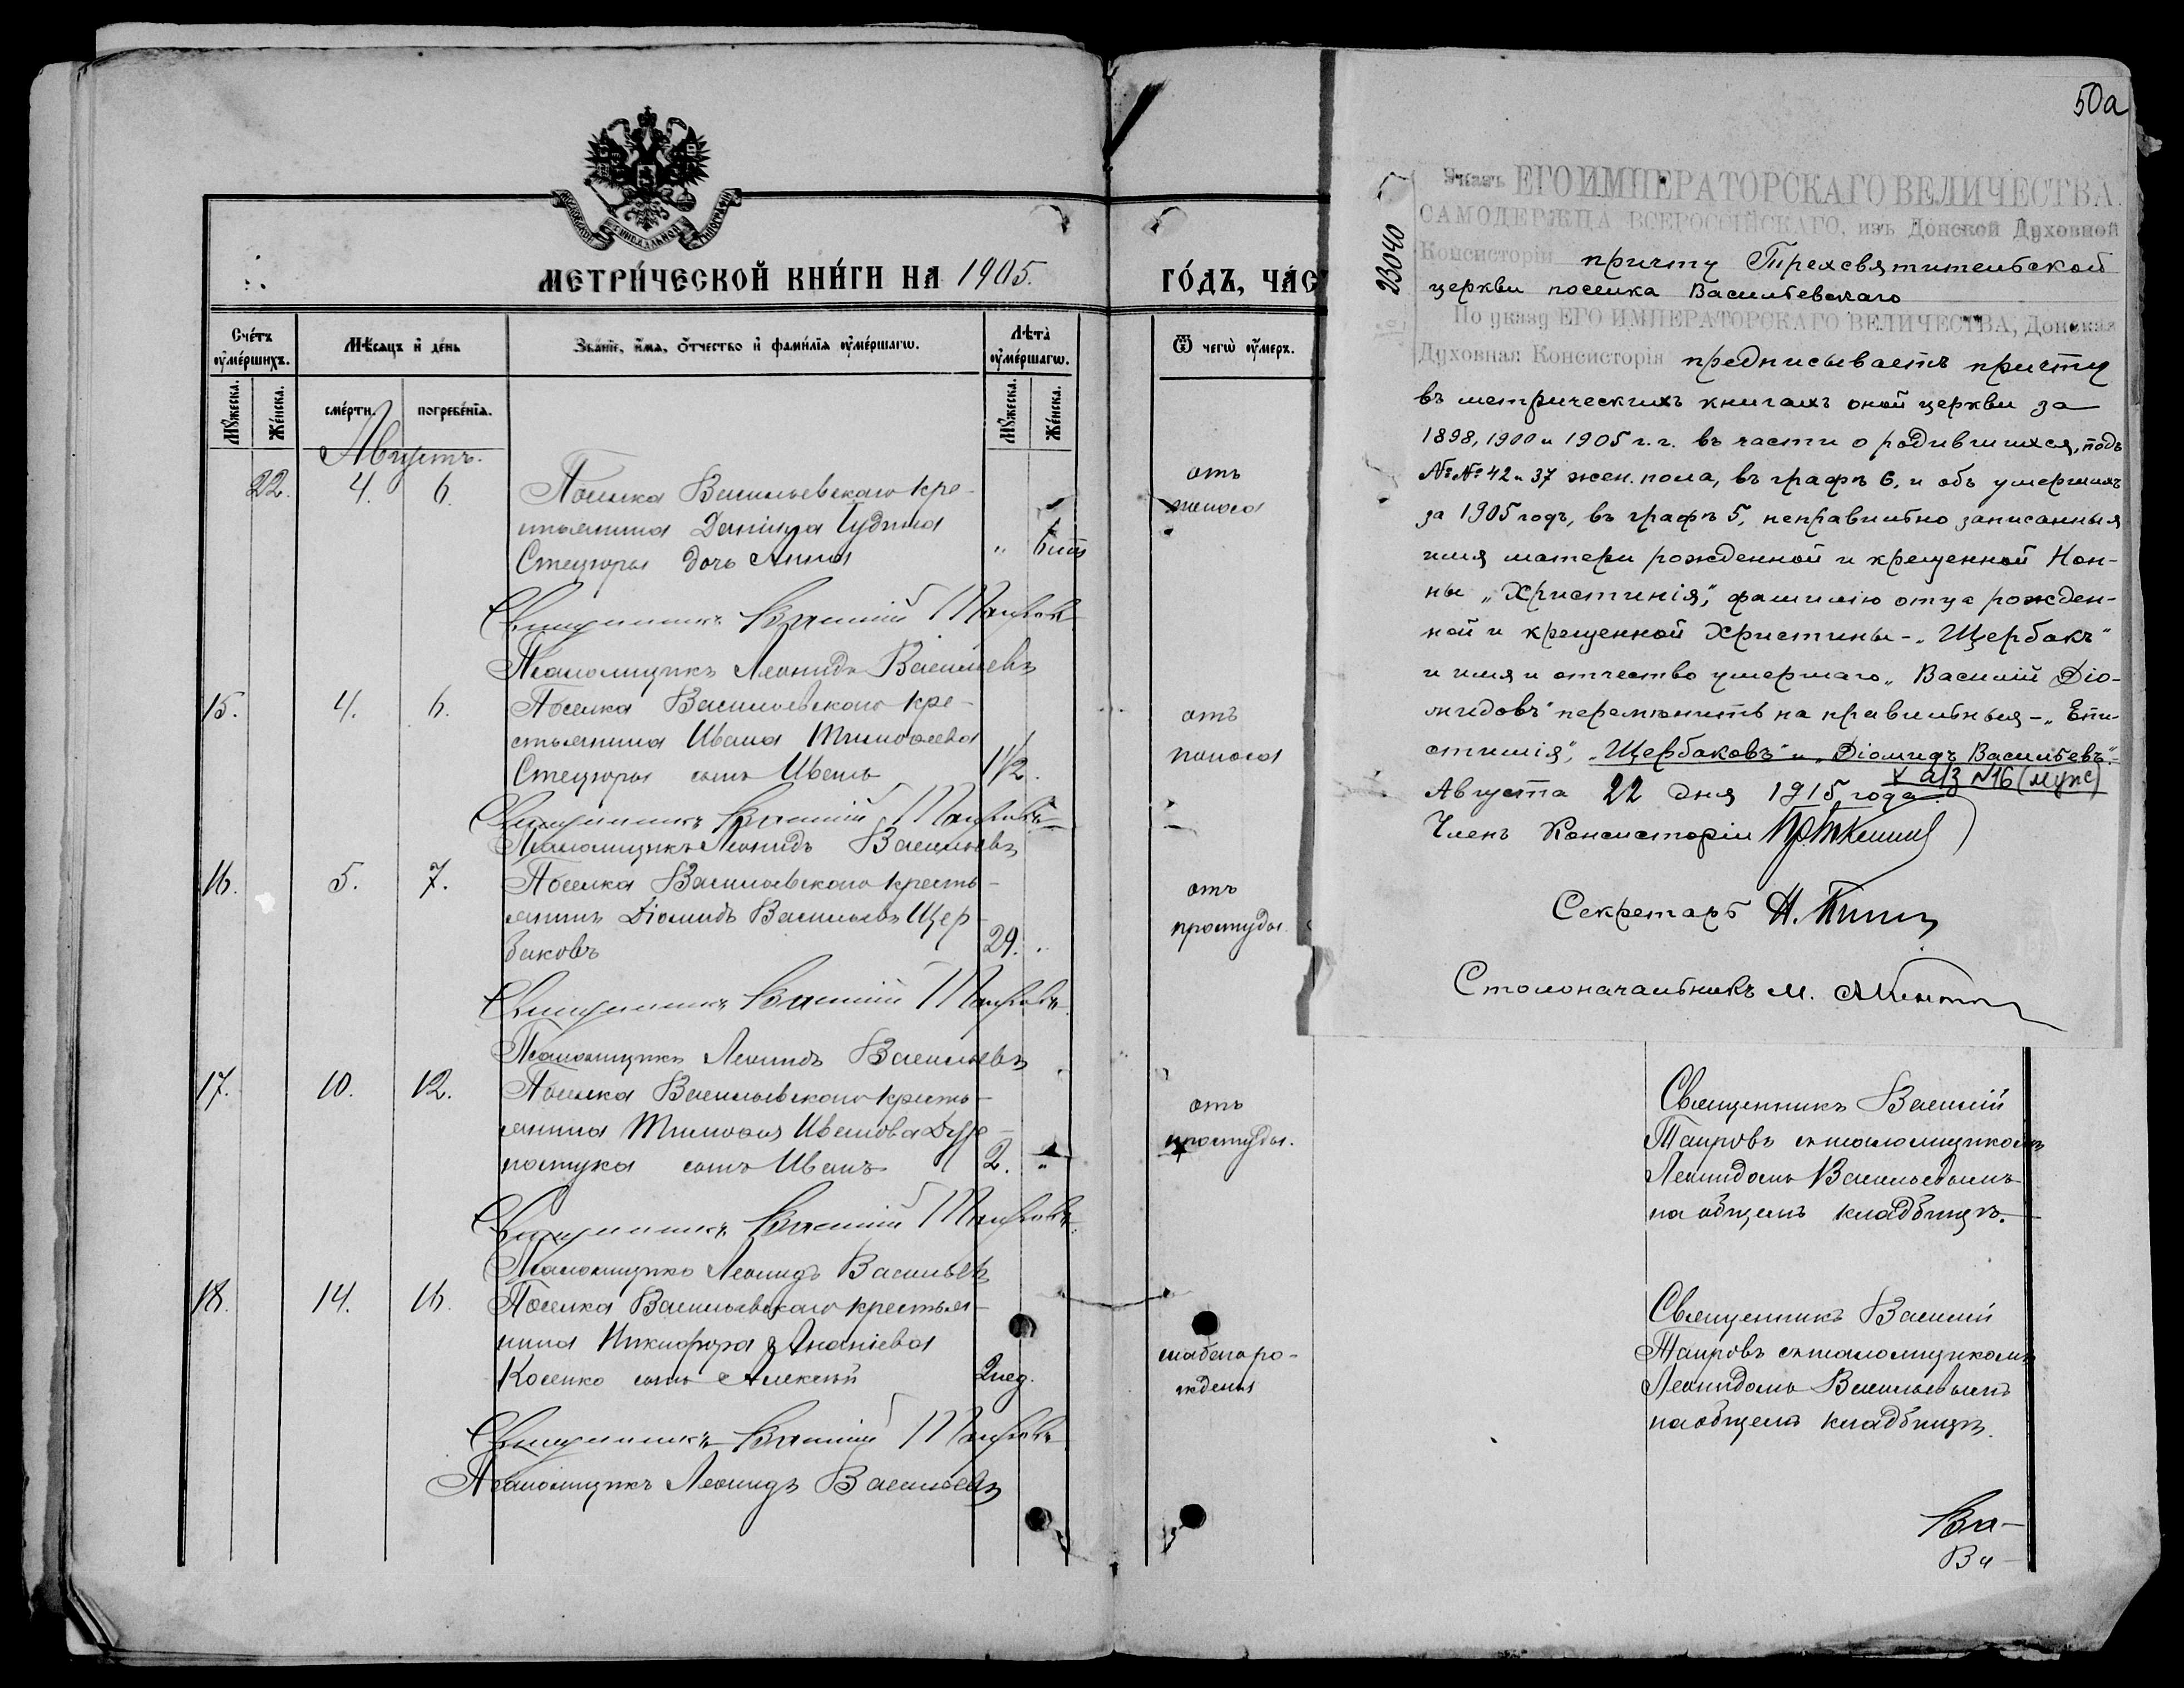 МЕТРИ́ЧЕСКОЙ КНИ́ГИ НА 1905.
Сче́тъ ᲂу҆ме́ршихъ.
Мѣ́сяцъ и҆ де́нь
Зва́нїе, и҆́мѧ, ѻ҆́тчество и҆ фами́лїѧ ᲂу҆ме́ршагѡ.
Лѣ́та ᲂу҆ме́ршагѡ.
Мꙋ́жеска.
Же́нска.
сме́рти.
погребе́нїѧ.
Мꙋ́жеска.
Же́нска.
Августъ.
22. 4. 6. Поселка Васильевскаго кре-
стьянина Даніила
Стецюры дочь Анна " 6 лѣтъ
Священникъ Василій Таировъ
Псаломщикъ Леонидъ Васильевъ
15. 4. 6. Поселка Васильевскаго кре-
стьянина Ивана Тимоѳеева
Стецюры сынъ Иванъ 1 1/2.
Священникъ Василій Таировъ
Псаломщикъ Леонидъ Васильевъ
16. 5. 7. Поселка Васильевскаго кресть-
янинъ Діомидъ Васильевъ Щер-
баковъ 29.
Священникъ Василій Таировъ
Псаломщикъ Леонидъ Васильевъ
17. 10. 12. Поселка Васильевскаго кресть-
янина Тимоѳея Иванова
сынъ Иванъ 2. "
Священникъ Василій Таировъ
Псаломщикъ Леонидъ Васильевъ
18. 14. 16. Поселка Васильевскаго крестья-
нина Никифора Ананіева
Косенко сынъ Алексѣй 2 нед.
Священникъ Василій Таировъ
Псаломщикъ Леонидъ Васильевъ
ГО́ДЪ, ЧАС
Ѿ чегѡ̀ ᲂу҆́меръ.
отъ
поноса
отъ
поноса
отъ
простуды.
отъ
простуды.
слабаго ро-
жденія
50а
23040
Указъ ЕГО ИМПЕРАТОРСКАГО ВЕЛИЧЕСТВА,
САМОДЕРЖЦА ВСЕРОССІЙСКАГО, изъ Донской Духовной
Консисторіи причту Трехсвятительской
церкви поселка Васильевскаго
По указу ЕГО ИМПЕРАТОРСКАГО ВЕЛИЧЕСТВА, Донская
Духовная Консисторія предписываетъ причту
въ метрическихъ книгахъ оной церкви за
1898, 1900 и 1905 г.г. въ части о родившихся, подъ
№№ 42 и 37 жен. пола, въ графѣ 6, и объ умершихъ
за 1905 годъ, въ графѣ 5, неправильно записанныя
имя матери рожденной и крещенной Нон-
ны „Христинія", фамилію отца рожден-
ной и крещенной Христины - „Щербакъ"
и имя и отчество умершаго „Василій Діо-
мидовъ" перемѣнить на правильныя - „Епи-
стимія", „Щербаковъ" и „Діомидъ Васильевъ".
Августа 22 дня 1915 года. х а/з №16 (муж)
Членъ Консисторіи
Секретарь Н.
Столоначальникъ М.
Священникъ Василій
Таировъ съ псаломщикомъ
Леонидомъ Васильевымъ
на общемъ кладбищѣ.
Священникъ Василій
Таировъ съ псаломщикомъ
Леонидомъ Васильевымъ
на общемъ кладбищѣ.
Ва-